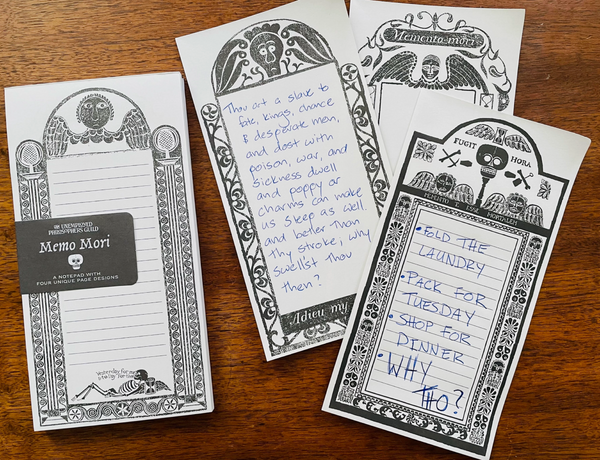 THE UNEMPLOYED
PHILOSOPHERS GUILD
Memo Mori
A NOTEPAD WITH
FOUR UNIQUE PAGE DESIGNS
Yesterday for me
Thou art a slave to
fate, kings, chance
& desperate men,
and dost with
poison, war, and
Sickness dwell
and poppy or
charms can make
us sleep as well
and better than
Thy stroke; why
swell'st thou
then?
Adieu my
Memento mori
FUGIT HORA
MEMENTO
• FOLD THE
LAUNDRY
• PACK FOR
TUESDAY
• SHOP FOR
DINNER
• WHY
THO?